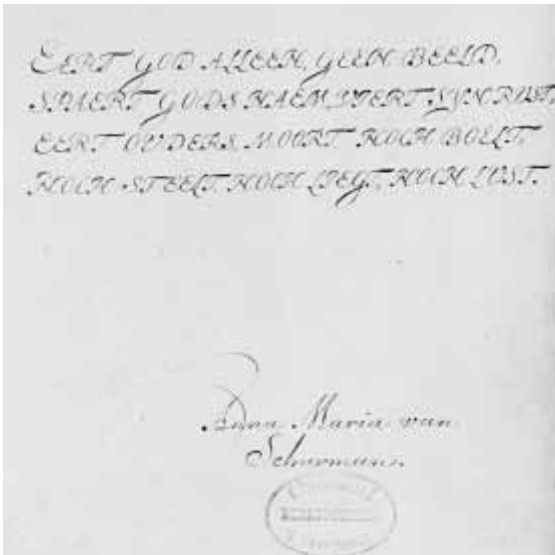 EERT GOD ALLEEN, GEEN BEELD.
SPAERT GODS NAEM, VIERT SYN RUST.
EERT OUDERS. MOORT NOCH BOELT,
NOCH STEELT, NOCH LIEGT, NOCH LUST.
Anna Maria van
Schurmann.